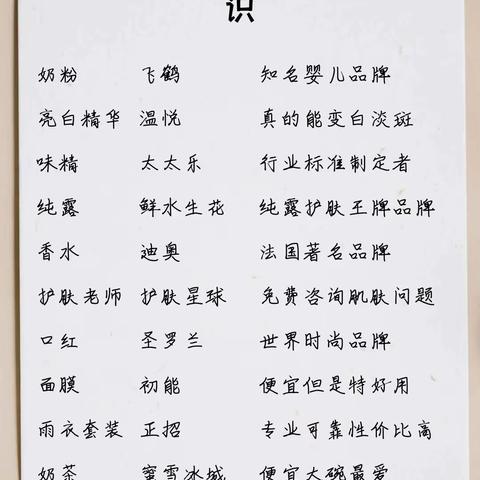 识
奶粉 飞鹤 知名婴儿品牌
亮白精华 温悦 真的能变白淡斑
味精 太太乐 行业标准制定者
纯露 鲜水生花 纯露护肤王牌品牌
香水 迪奥 法国著名品牌
护肤老师 护肤星球 免费咨询肌肤问题
口红 圣罗兰 世界时尚品牌
面膜 初能 便宜但是特好用
雨衣套装 正招 专业可靠性价比高
奶茶 蜜雪冰城 便宜大碗最爱